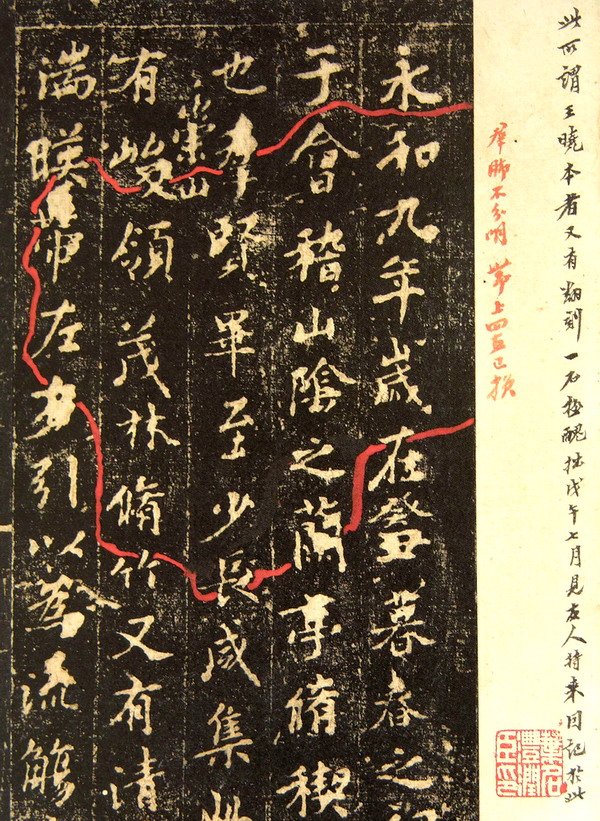 此所謂王曉本者又有翻刻一石極醜拙戊午七月見友人持來因記於此
羣脚不分明 帶上四已損
葉名
灃潤
臣印
永和九年歲在癸丑暮春之
于會稽山陰之蘭亭脩禊
也羣賢畢至少長咸集此
崇山
有峻領茂林脩竹又有清
湍暎帶左右引以為流觴